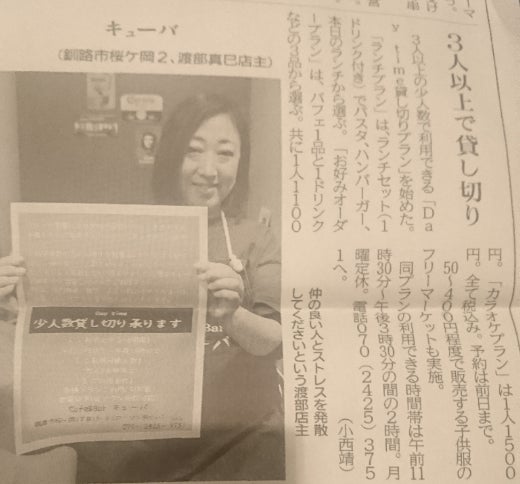 キューバ
（釧路市桜ケ岡２、渡部真巳店主）
３人以上で貸し切り
３人以上の少人数で利用できる「Ｄａ
ｙ ｔｉｍｅ貸し切りプラン」を始めた。
「ランチプラン」は、ランチセット（１
ドリンク付き）でパスタ、ハンバーガー、
本日のランチから選ぶ。「お好みオーダ
ープラン」は、パフェ１品と１ドリンク
などの３品から選ぶ。共に１人１１００
円。「カラオケプラン」は１人１５００
円。全て税込み。予約は前日まで。
５０〜４００円程度で販売する子供服の
フリーマーケットも実施。
同プランの利用できる時間帯は午前１１
時３０分〜午後３時３０分の間の２時間。月
曜定休。電話０７０（２４２５）３７５
１へ。
（小西靖）
仲の良い人とストレスを発散
してくださいという渡部店主
Day time
少人数貸し切り承ります
Cafe&Bar キューバ
Bar
ーバ